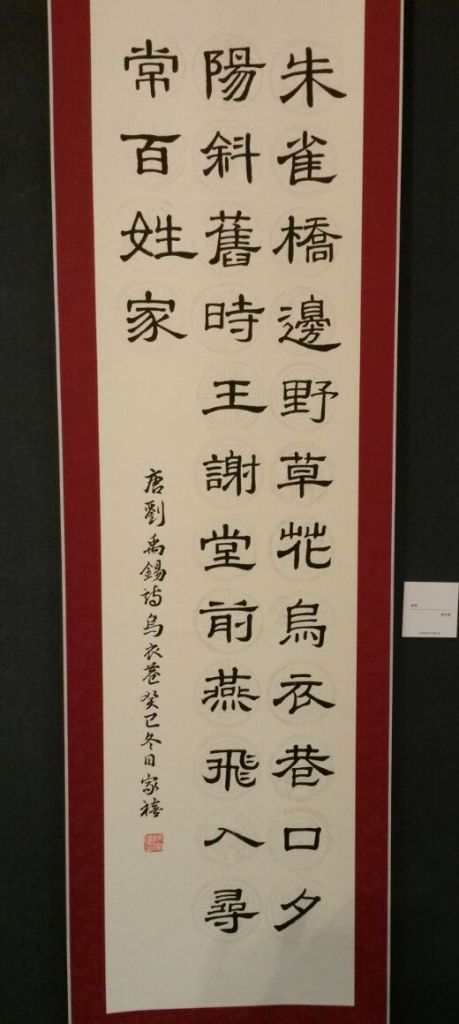 朱雀橋邊野草花烏衣巷口夕
陽斜舊時王謝堂前燕飛入尋
常百姓家
唐劉禹錫詩烏衣巷癸巳冬日家禧